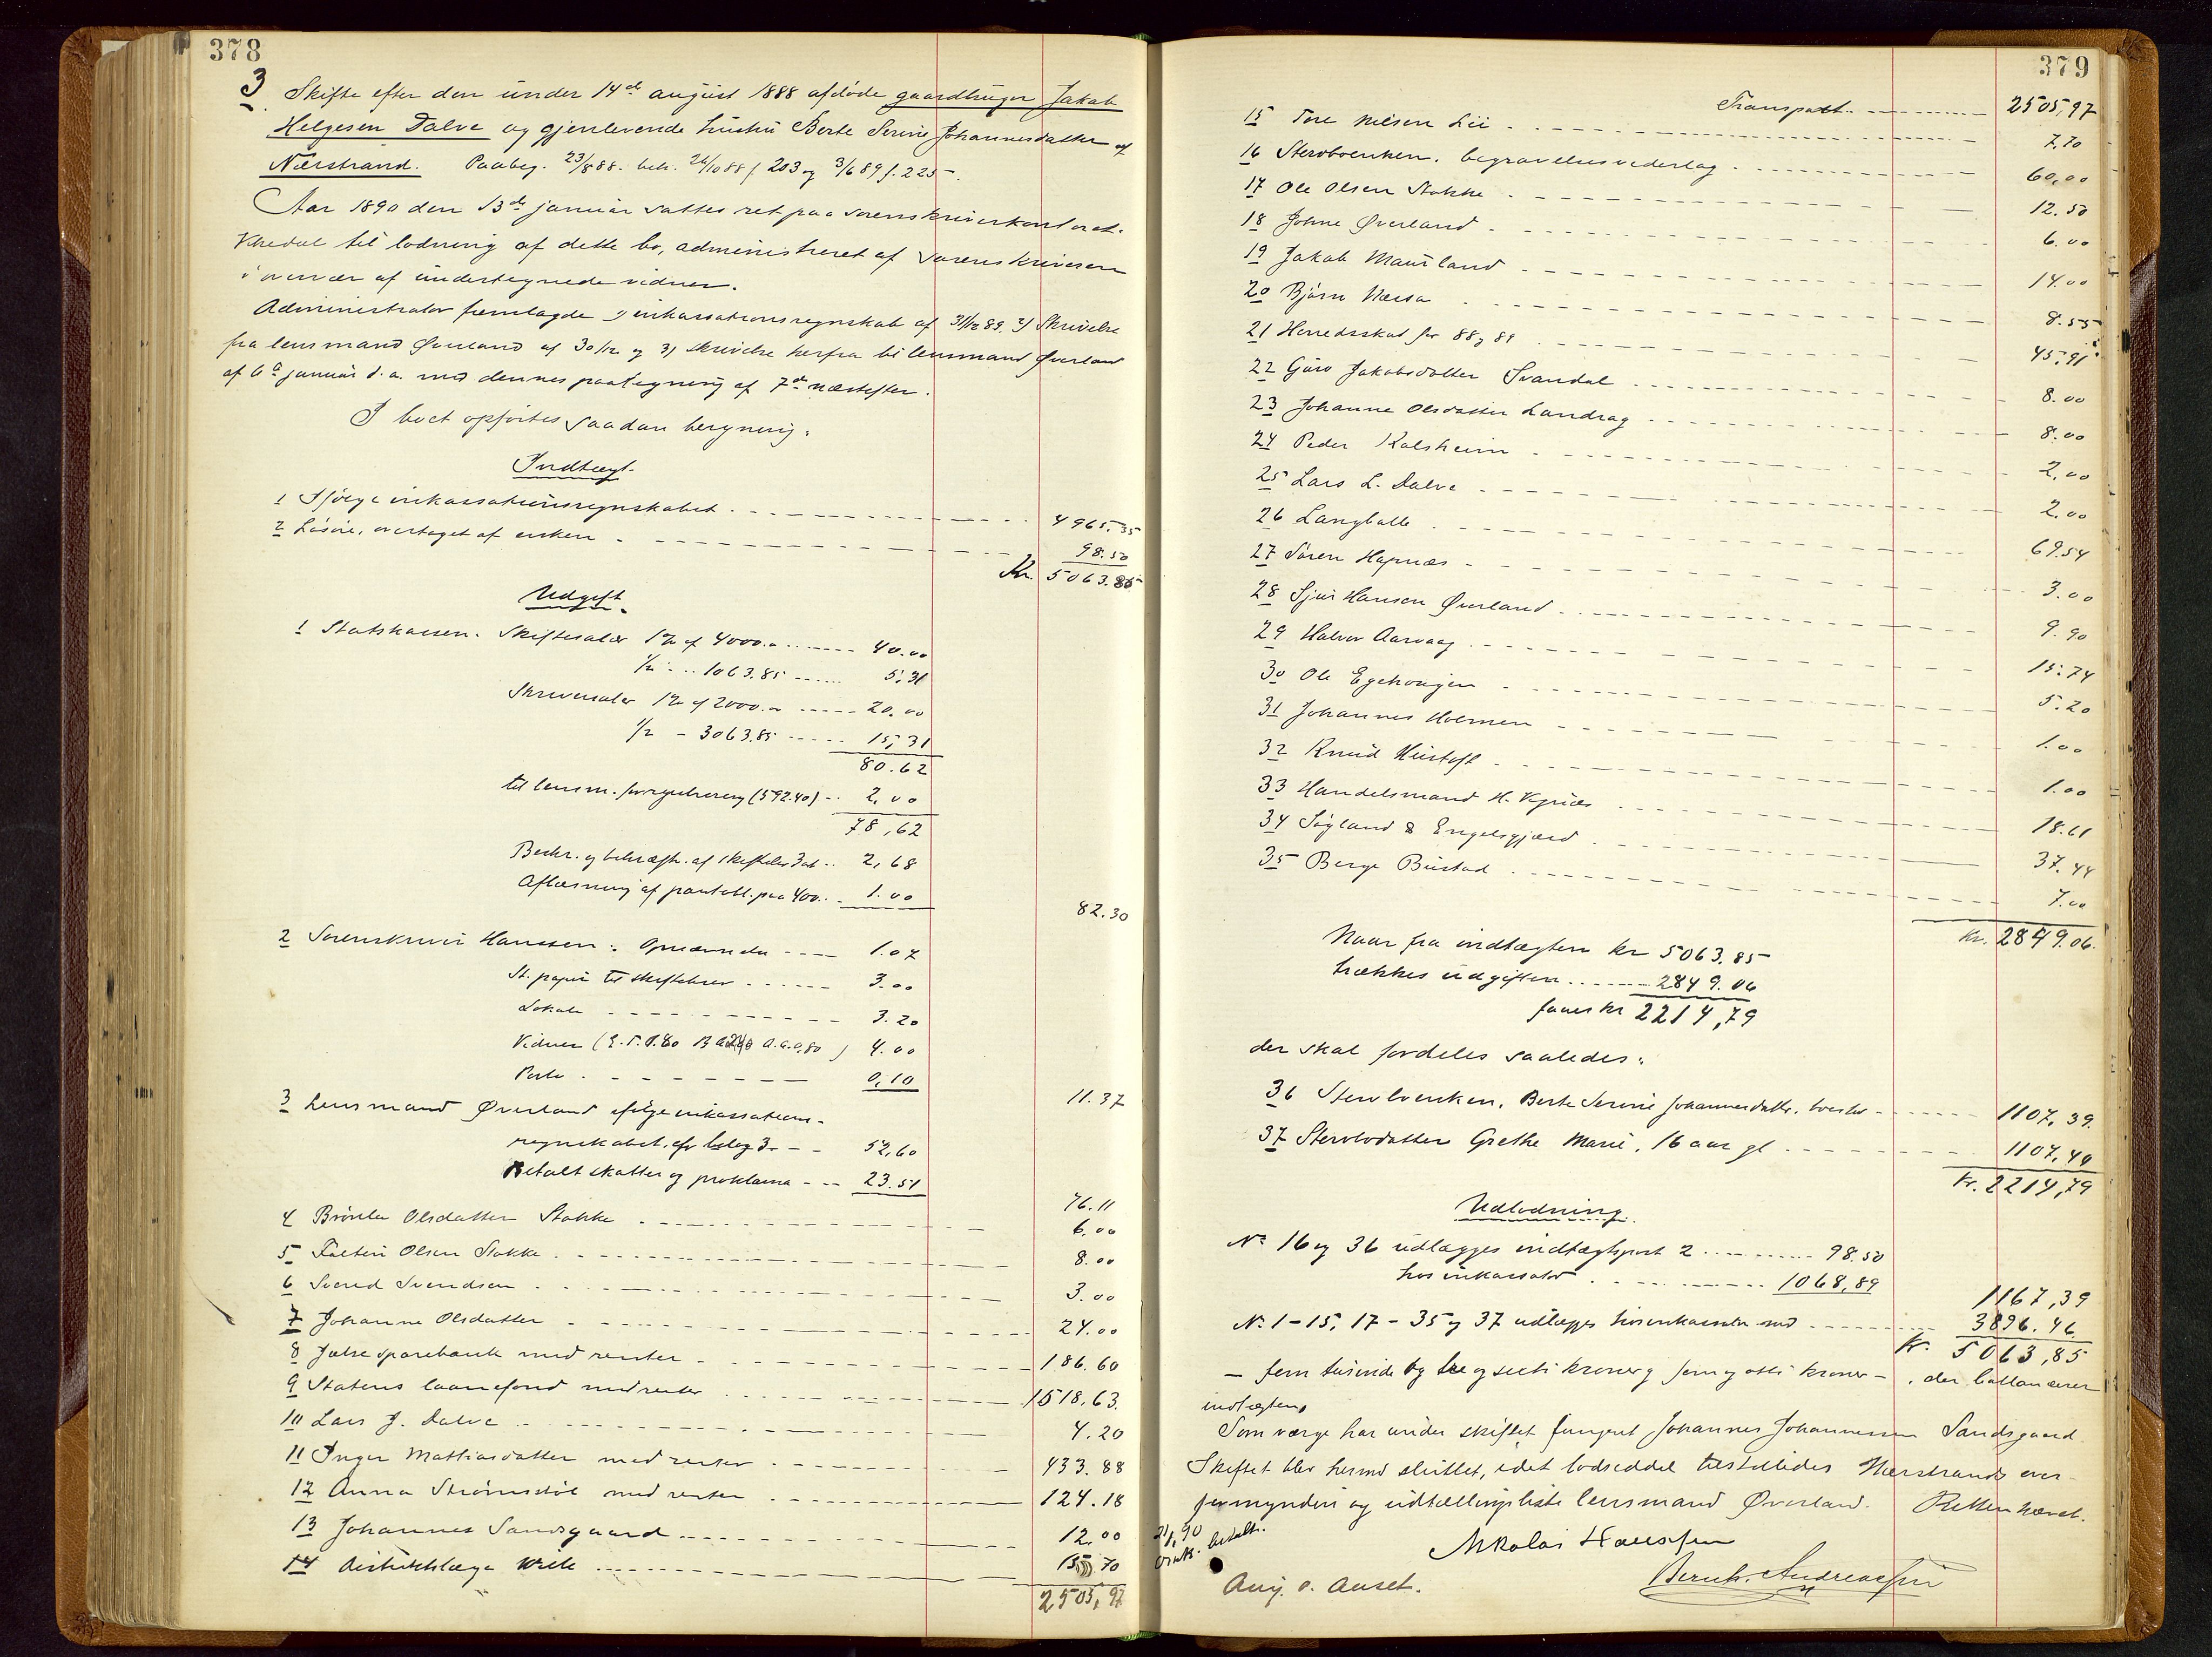 378
3 Skifte efter den under 14de august 1888 afdöde gaardbruger Jakob
Helgesen Dalve og gjenlevende hustru Berte Serine Johannesdatter af
Nærstrand. Paabeg. 23/8 88. beh. 26/10 88 f 203 og 3/6 89 f. 225.
Aar 1890 den 13de januar sattes ret paa sorenskriverkontoret.
til lodning af dette bo, administreret af sorenskriveren
i overvær af undertegnede vidner.
Administrator fremlagde 1) inkassationsregnskab af 31/12 89. 2) Skrivelse
fra lensmand Øverland af 30/12 og 3) skrivelse herfra til lensmand Øverland
af 6te januar d. a. med dennes paategning af 7de næstefter.
I boet opførtes saadan beregning:
Indtægt
1 Ifölge inkassationsregnskabet 4965.35
2 Lösöre, overtaget af enken 98.50
Kr. 5063.85
Udgift
1 Statskassen. Skiftesalær 1% af 4000.- 40.00
1/2 - 1063.85 5.31
Skriversalær 1% af 2000.- 20.00
1/2 - 3063.85 15,31
80.62
til lensm. for registrering (592.40) 2,00
78,62
Beskr. og bekræft. af skiftebr 3 ark 2,68
Aflæsning af pantobl. paa 400 1.00
82.30
2 Sorenskriver Hanssen: 1.07
St. papir til skiftebrev 3.00
Lokale 3.20
Vidner 4.00
Porto 0,10
11.37
3 Lensmand Øverland ifölge inkassations-
regnskabet, bilag 3 52,60
Betalt skatter og proklama 23.51
76.11
4 Olsdatter Stokke 6,00
5 Olsen Stokke 8.00
6 Svend Svendsen 3.00
7 Johanne Olsdatter 24.00
8 Jælse sparebank med renter 186.60
9 Statens laanefond med renter 1518,63.
10 Lars J. Dalve 4.20
11 Inger Mathiasdatter med renter 433.88
12 Anna Strömstöl med renter 124.18
13 Johannes Sandsgaard 12,00
14 Distriktslæge 15,70
2505,97
379
Transport 2505,97
15 Tore Nielsen Lii 7,70
16 Stervboenken. begravelsesvederlag 60,00
17 Ole Olsen Stokke 12.50
18 Johne Øverland 6.00
19 Jakob Mauland 14.00
20 Björn Næssa 8.55
21 Herredsskat for 88 og 89 45.91
22 Guro Jakobsdatter Svandal 8.00
23 Johanne Olsdatter Landrag 8.00
24 Peder Kolsheim 2,00
25 Lars L. Dalve 2.00
26 Langballe 69.54
27 Sören Hapnæs 3.00
28 Sjur Hansen Øverland 9.90
29 Halvor Aarvaag 15.74
30 Ole Egehougen 5.20
31 Johannes Holmen 1.00
32 Knud Heistøft 1.00
33 Handelsmand H. 18.61
34 Søyland & Engelsgjærd 37.44
35 Berge Bustad 7.00
Kr. 2849.06.
Naar fra indtægten kr 5063.85
trækkes udgiften 2849.06
faaes kr 2214,79
der skal fordeles saaledes:
36 Stervboenken, Berte Serine Johannesdatter. 1107,39.
37 Stervbodatter Grethe Marie, 16 aar gl 1107,40
Kr. 2214,79
Udlodning.
No 16 og 36 udlægges indtægtspost 2 98.50
hos inkassator 1068,89
1167,39
No 1-15, 17-35 og 37 udlægges hos inkassator med 3896.46
Kr. 5063,85
- fem tusinde og tre og seksti kroner og fem og otti kroner -, der ballancerer
indtægten.
Som værge har under skiftet fungeret Johannes Johannessen Sandsgaard
Skiftet blev hermed sluttet, idet lodseddel tilstilledes Nærstrands over-
formynderi og udtællingsliste lensmand Øverland. Retten hævet.
Nikolai Hanssen
21/1 90
betalt.
Aug. O. Auset. Bernh. Andreassen